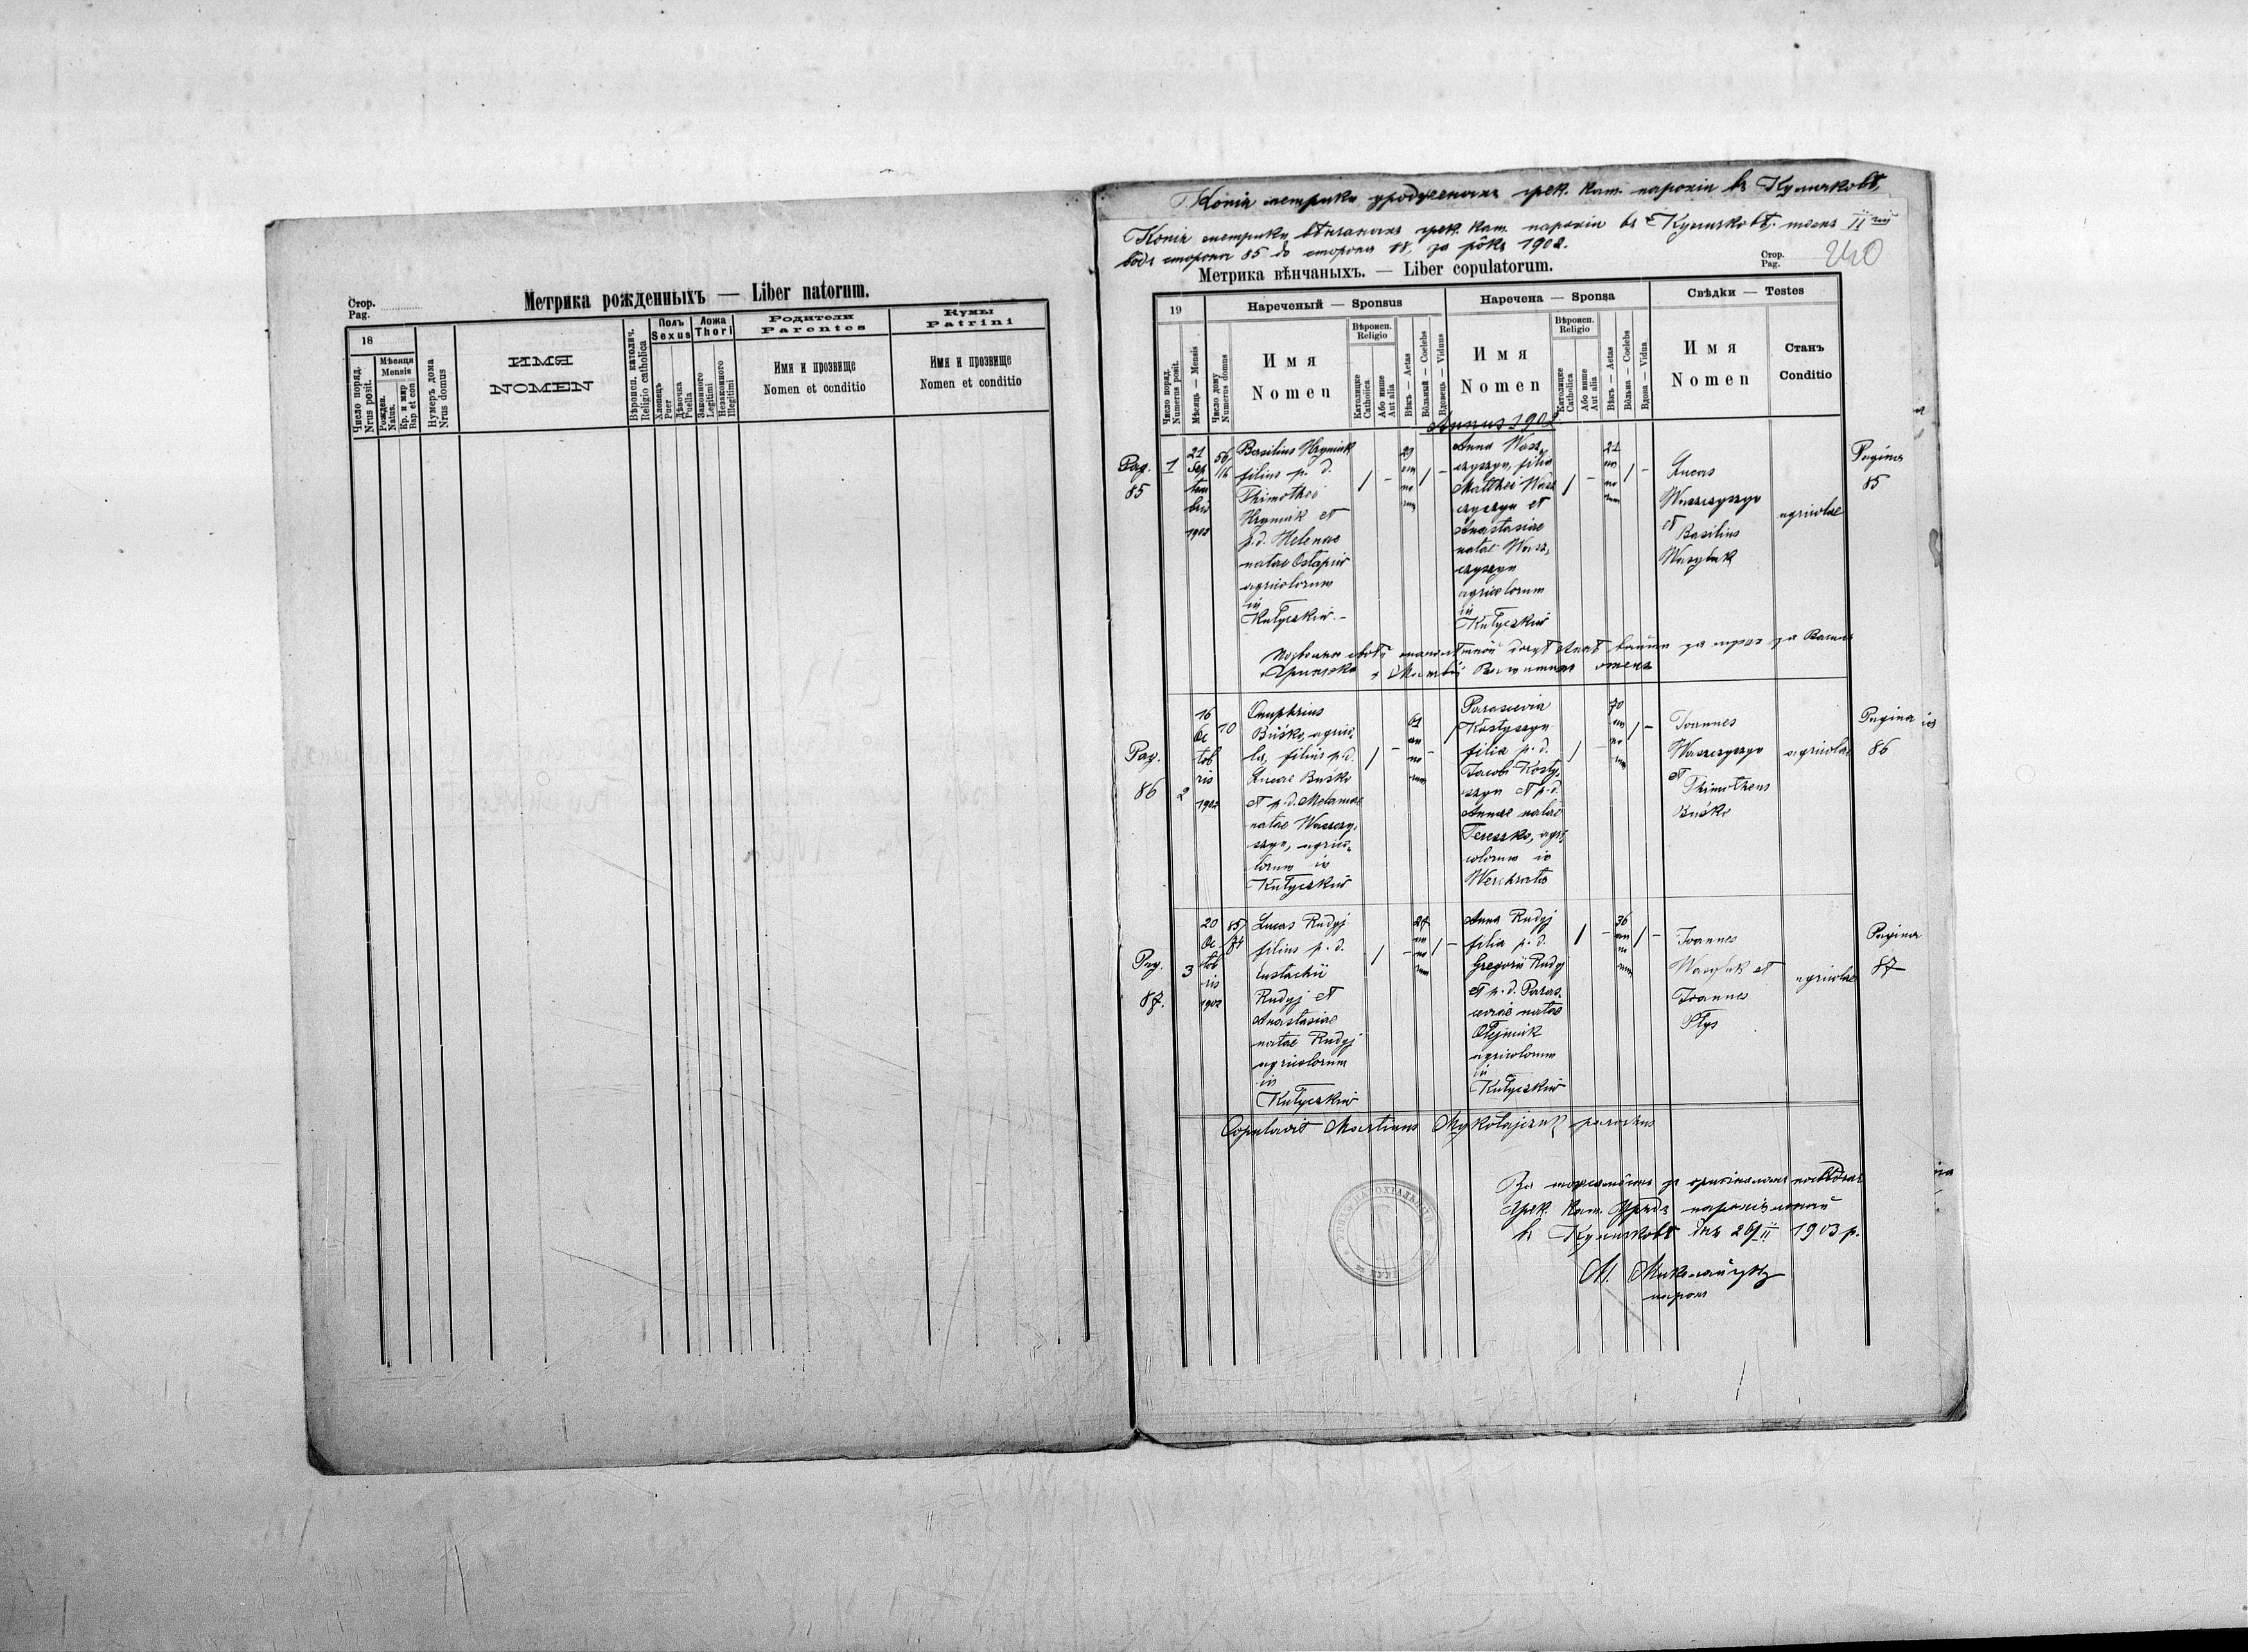 Стор.
Pag.
Метрика рожденныхъ — Liber natorum.
18
Число поряд.
Nrus posit.
Мѣсяця
Mensis
Рожден.
Natus.
Кр. и мир
Bap et con
Нумеръ дома
Nrus domus
ИМЯ
NOMEN
Вѣроисп. католич.
Religio catholica
Полъ
Sexus
Хлопець
Puer
Дѣвочка
Puella
Ложа
Thori
Законного
Legitimi
Незаконного
Illegitimi
Родители
Parentes
Имя и прозвище
Nomen et conditio
Кумы
Patrini
Имя и прозвище
Nomen et conditio
Копія метрики урожденыхъ грек. кат. парохіи въ Куличковѣ,
Копія метрики вѣнчаныхъ грек. кат. парохіи въ Куличковѣ, томъ II
вôдъ сторона 85 до сторона 88, за рôкъ 1902.
Метрика вѣнчаныхъ. — Liber copulatorum.
Стор.
Pag.
240
19
Число поряд.
Numerus posit.
Мѣсяць — Mensis
Число дому
Numerus domus
Нареченый — Sponsus
Имя
Nomen
Вѣроисп.
Religio
Католицке
Catholica
Або инше
Aut alia
Вѣкъ — Aetas
Вôльный — Coelebs
Вдовець — Viduus
Наречена — Sponsa
Имя
Nomen
Вѣроисп.
Religio
Католицке
Catholica
Або инше
Aut alia
Вѣкъ — Aetas
Вôльна — Coelebs
Вдова — Vidua
Свѣдки — Testes
Имя
Nomen
Станъ
Conditio
Annus 1902
Pag.
85
1
21
Sep
tem
bris
1902
56/
16
Basilius Hrynink
filius p. d.
Thimothei
Hrynink et
p.d. Helenae
natae Ostapiw
agricolorum
in
Kułyczkiw.-
/
-
29
an
no
rum
/
-
Anna Wasz,
czyszyn, filia
Matthei Wasz
czyszyn et
Anastasiae
natae Wasz,
czyszyn
agricolorum
in
Kułyczkiw
/
-
21
an
no
rum
/
-
Lucas
Waszczyszyn
et
Basilius
Wasyluk
agricolae
Pagina
85
Pag.
86
2
16
Oc
tob
ris
1902
10
Onuphrius
Buśko, agrico,
la, filius p.d.
Lucae Buśko
et p.d. Melaniae
natae Waszczy,
szyn, agrico,
lorum in
Kułyczkiw
/
-
61
an
no
rum
-
/
Parascevia
Kostyszyn
filia p. d.
Jacobi Kosty,
szyn et p.d.
Annae natae
Tereszko, agri,
colorum in
Werchrata
/
-
70
an
no
rum
/
-
Joannes
Waszczyszyn
et
Thimotheus
Buśko
agricolae
Pagina
86
Pag.
87.
3
20
Oc
tob
ris
1902
85/
74
Lucas Rudyj
filius p. d.
Eustachii
Rudyj et
Anastasiae
natae Rudyj
agricolorum
in
Kułyczkiw
/
-
27
an
no
rum
/
-
Anna Rudyj
filia p. d.
Gregorii Rudyj
et p. d. Paras,
ceviae natae
Olejnik
agricolorum
in
Kułyczkiw
/
-
36
an
no
rum
/
-
Joannes
Wasyluk et
Joannes
Płys
agricolae
Pagina
87
Copulavit Martinus Mykołajczuk parochus
За тожсамôсть зъ оригіналомъ посвѣдчає
Грек. Кат. Урядъ парохіяльный
въ Куличковѣ дня 26/II 1903 р.
М. Миколайчукъ
парохъ